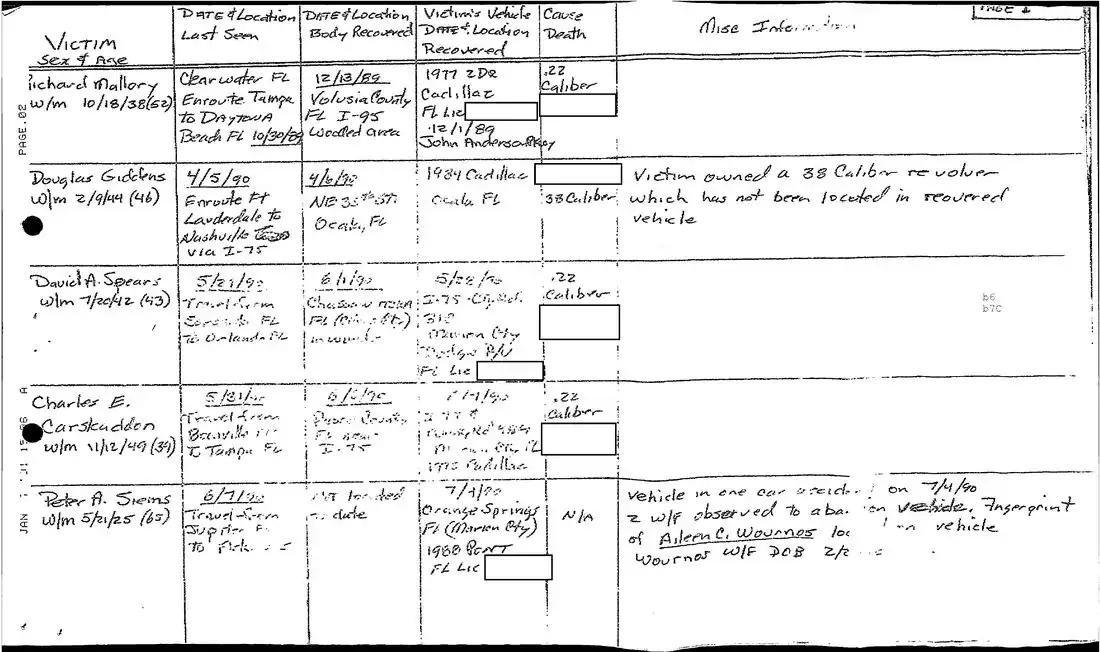 PAGE 1
VICTIM
Sex & Age
DATE & Location
Last Seen
DATE & Location
Body Recovered
Victim's Vehicle
DATE & Location
Recovered
Cause
Death
Misc Information
PAGE.02
Richard Mallory
w/m 10/18/38(52)
Clearwater FL
Enroute Tampa
to DAYTONA
Beach FL 10/30/89
12/13/89
Volusia County
FL I-95
Wooded area
1977 2DR
Cadillac
FL Lic
12/1/89
John Anderson
.22
Caliber
Douglas Giddens
w/m 2/9/44 (46)
4/5/90
Enroute Ft
Lauderdale to
Nashville
via I-75
4/6/90
NE 35th ST.
Ocala, FL
1984 Cadillac
Ocala FL
38 Caliber
Victim owned a 38 Caliber revolver
which has not been located in recovered
vehicle
David A. Spears
w/m 7/20/42 (43)
5/21/90
Travel from
FL
To Orlando FL
6/1/90
FL
in woods
5/28/90
I-75
318
Marion Cty
Dodge P/U
FL Lic
.22
Caliber
b6
b7C
Charles E.
Carskaddon
w/m 11/12/49 (39)
5/31/90
Travel from
To Tampa FL
Pasco County
FL near
I-75
Cadillac
.22
Caliber
JAN
Peter A. Siems
w/m 5/21/25 (65)
6/7/90
Travel from
Jupiter FL
to
Not located
to date
7/4/90
Orange Springs
FL (Marion Cty)
1988 PONT
FL Lic
N/A
Vehicle in one car accident on 7/4/90
2 W/F observed to abandon vehicle. Fingerprint
of Aileen C. Wournos on vehicle
Wournos W/F DOB 2/2